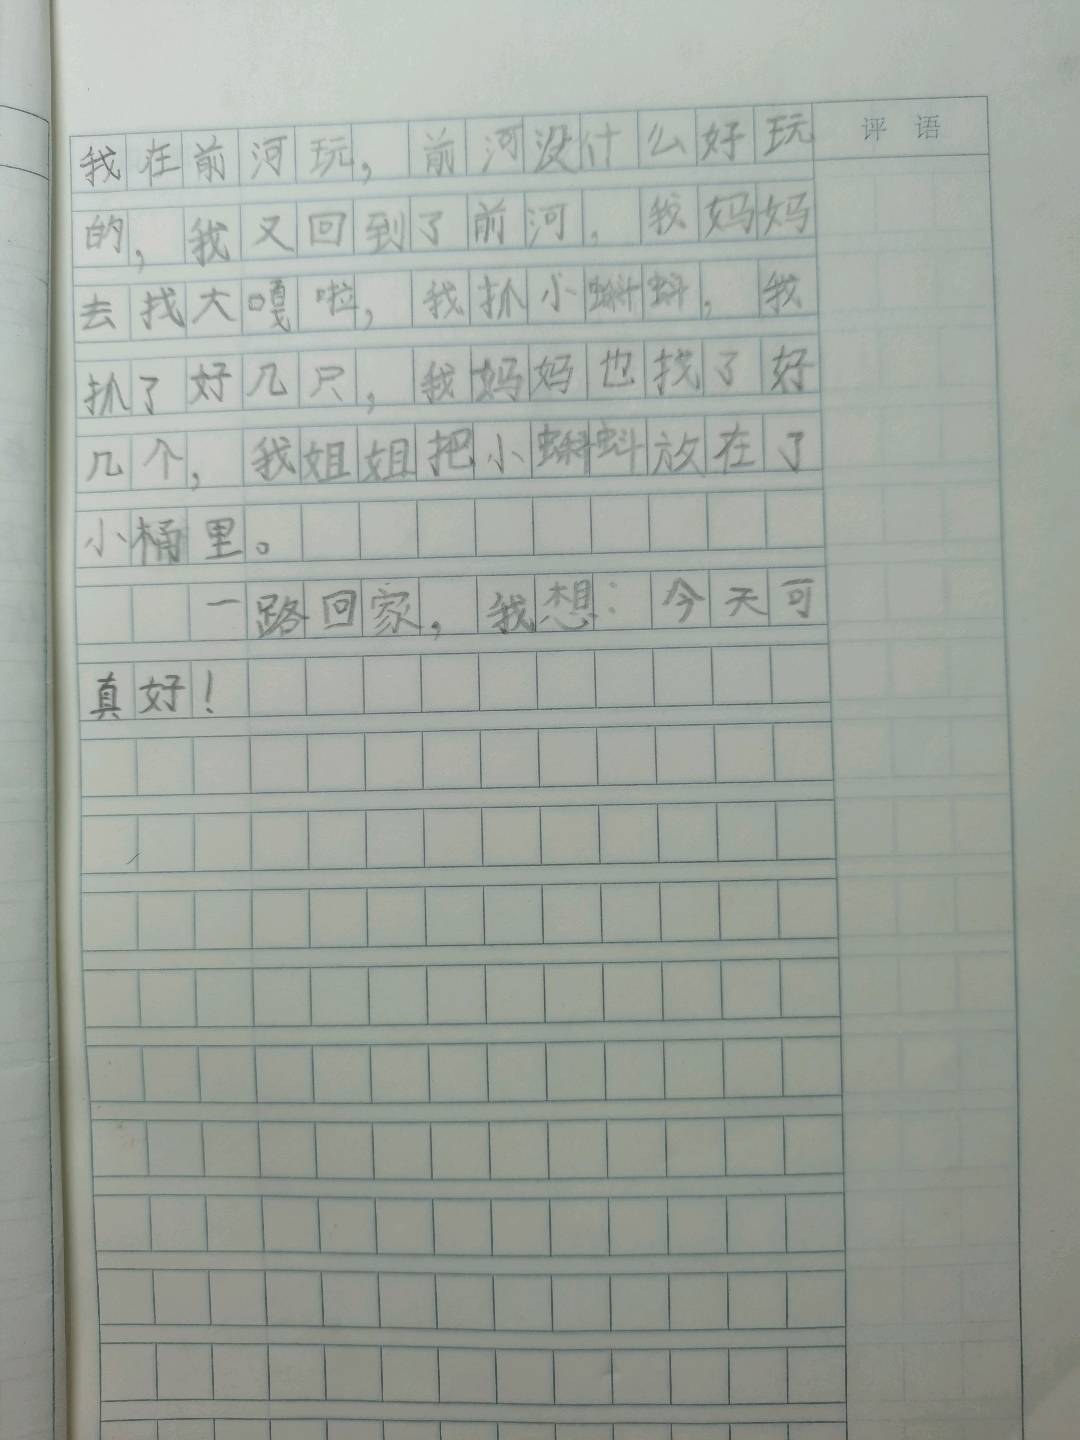 评语
我在前河玩，前河没什么好玩
的，我又回到了前河，我妈妈
去找大嘎啦，我抓小蝌蚪，我
抓了好几只，我妈妈也找了好
几个，我姐姐把小蝌蚪放在了
小桶里。
一路回家，我想：今天可
真好！